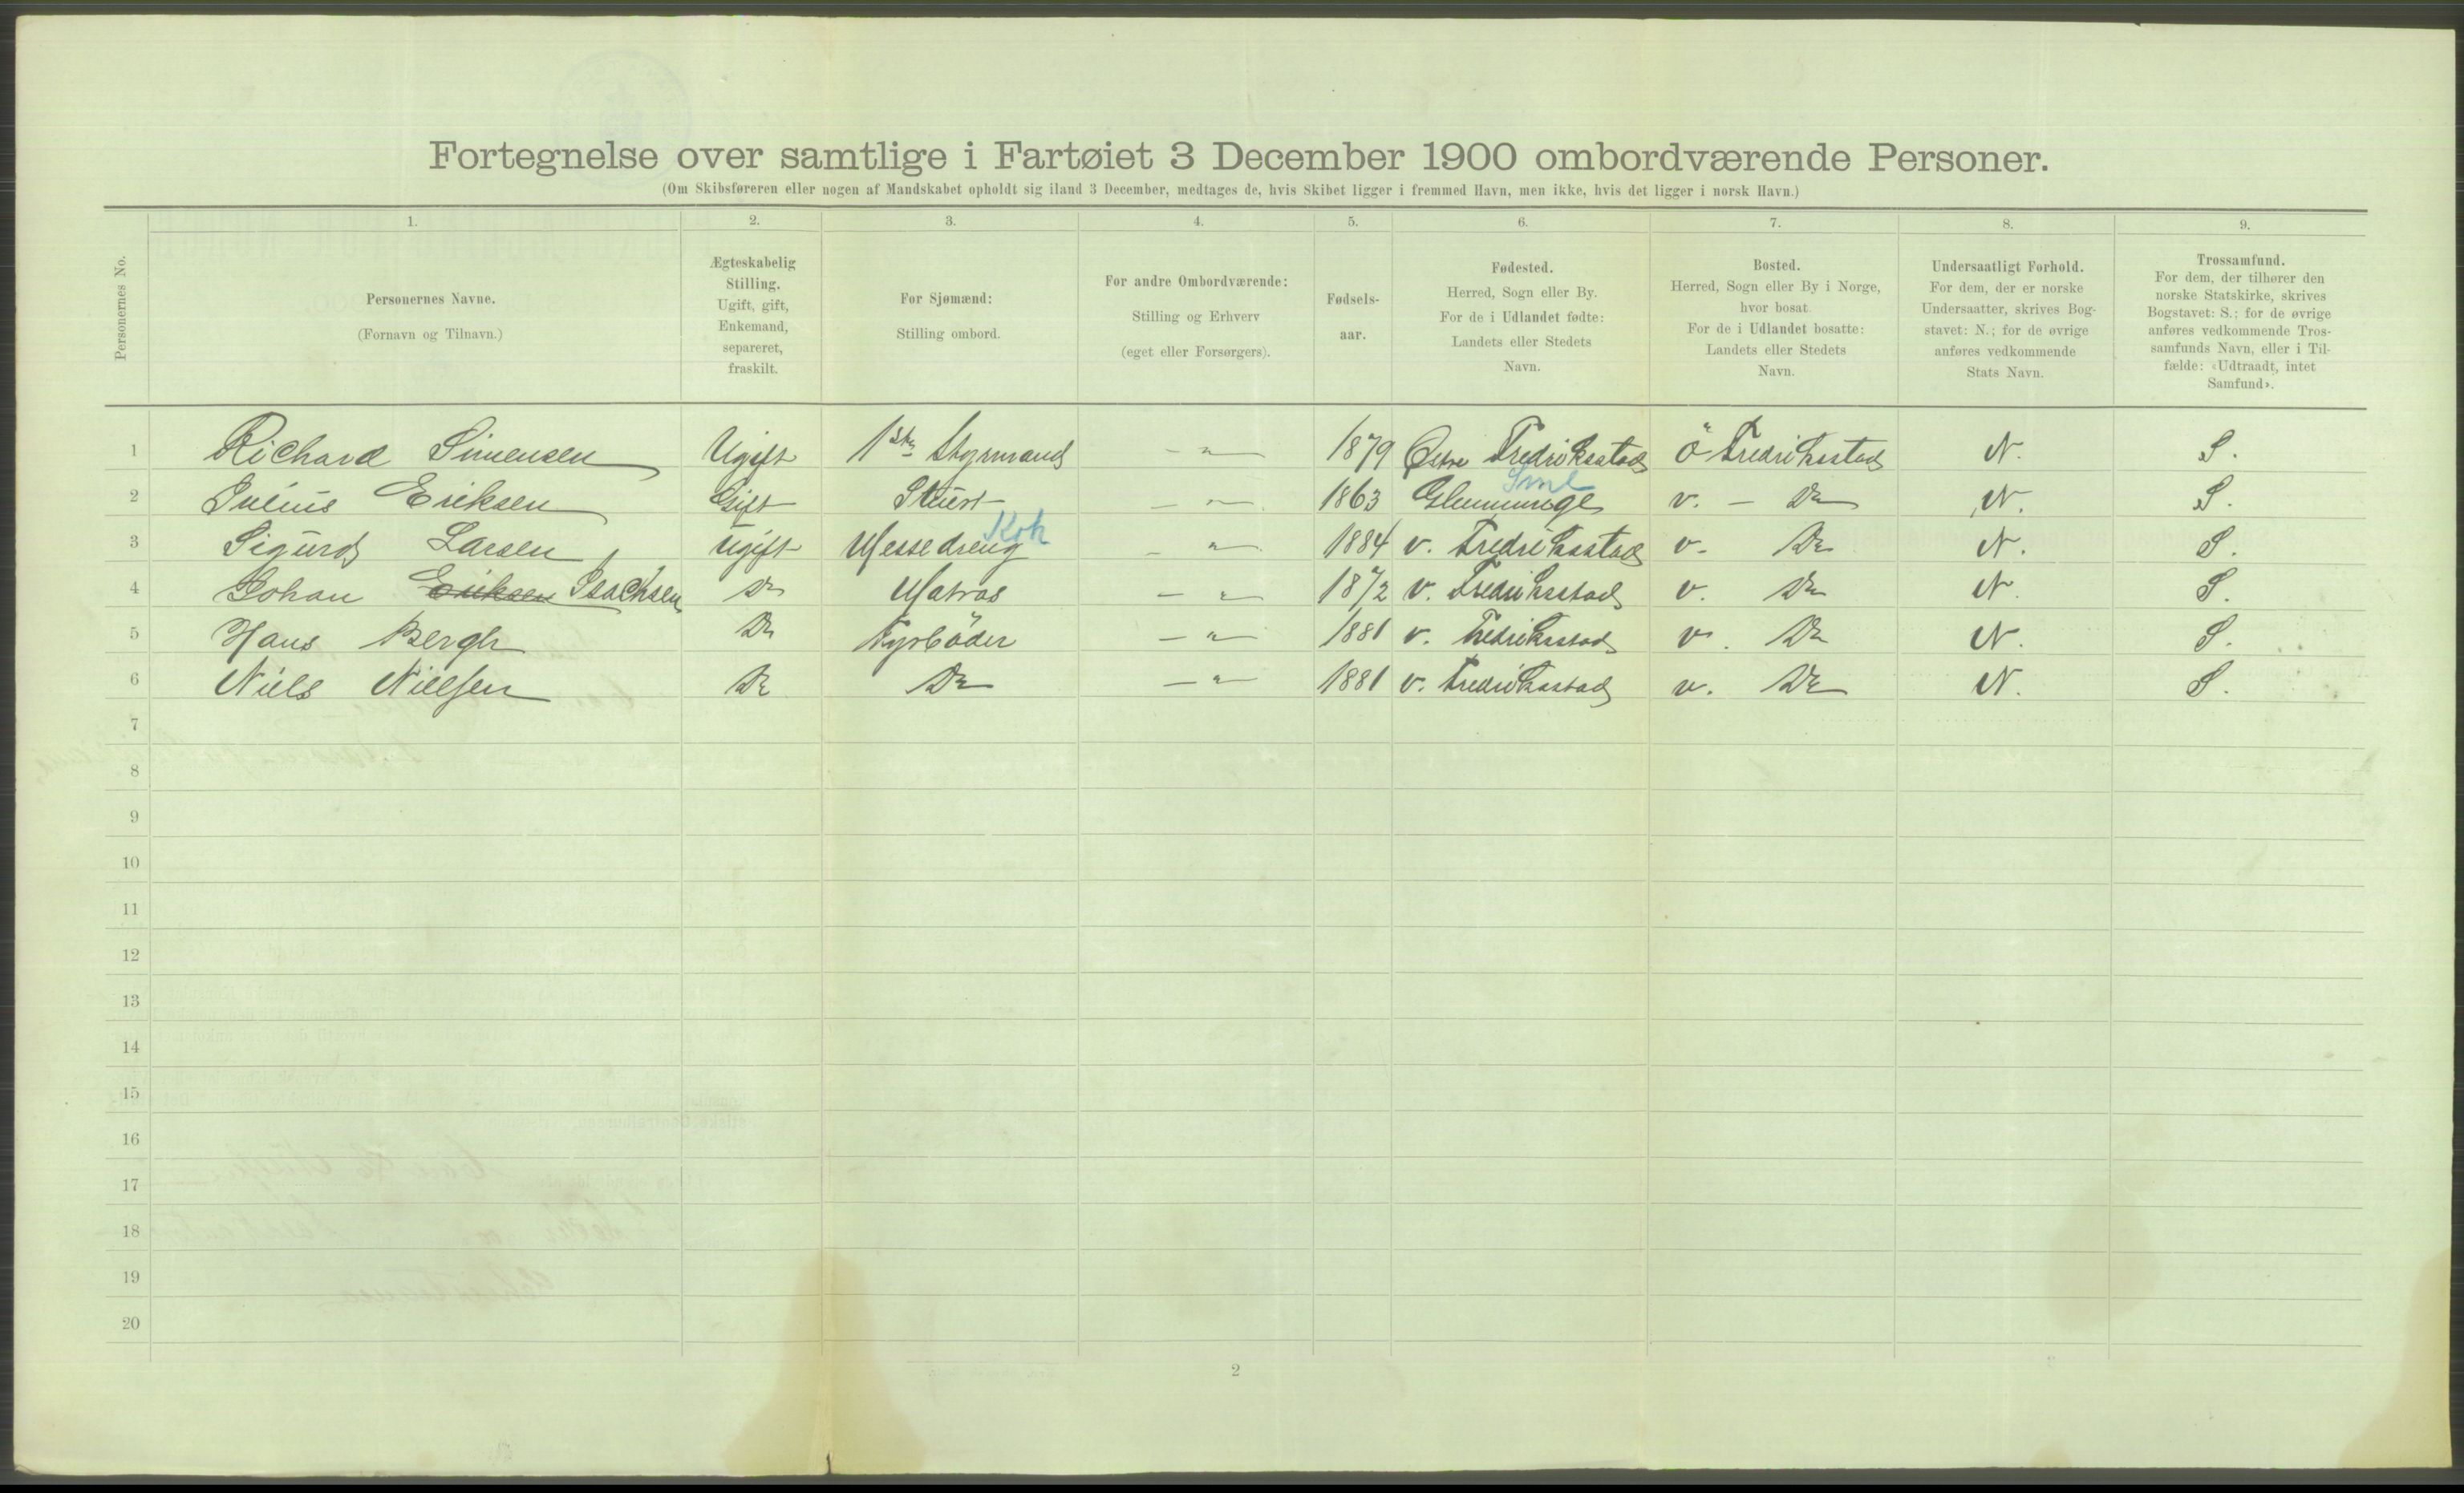 Fortegnelse over samtlige i Fartøiet 3 December 1900 ombordværende Personer.
(Om Skibsføreren eller nogen af Mandskabet opholdt sig iland 3 December, medtages de, hvis Skibet ligger i fremmed Havn, men ikke, hvis det ligger i norsk Havn.)
Personernes No.
1. 2. 3. 4. 5. 6. 7. 8. 9.
Personernes Navne.
(Fornavn og Tilnavn.)
Ægteskabelig
Stilling.
Ugift, gift,
Enkemand,
separeret,
fraskilt.
For Sjømænd:
Stilling ombord.
For andre Ombordværende:
Stilling og Erhverv
(eget eller Forsørgers).
Fødsels-
aar.
Fødested.
Herred, Sogn eller By.
For de i Udlandet fødte:
Landets eller Stedets
Navn.
Bosted.
Herred, Sogn eller By i Norge,
hvor bosat.
For de i Udlandet bosatte:
Landets eller Stedets
Navn.
Undersaatligt Forhold.
For dem, der er norske
Undersaatter, skrives Bog-
stavet: N.; for de øvrige
anføres vedkommende
Stats Navn.
Trossamfund.
For dem, der tilhører den
norske Statskirke, skrives
Bogstavet: S.; for de øvrige
anføres vedkommende Tros-
samfunds Navn, eller i Til-
fælde: «Udtraadt, intet
Samfund».
1 Richard Simensen Ugift 1ste Styrmand - " - 1879 Østre Fredrikstad Ö Fredrikstad N. S.
Sml
2 Julius Eriksen Gift Stuert - " - 1863 Glemminge v. - Do N. S.
Kok
3 Sigurd Larsen Ugift Messedreng - " - 1884 v. Fredrikstad v. Do N. S.
4 Johan Eriksen Isachsen Do Matros - " - 1872 v. Fredriksstad v. Do N. S.
5 Hans Bergh Do Fyrböder - " - 1881 v. Fredriksstad v. Do N. S.
6 Niels Nielsen Do Do - " - 1881 v. Fredrikstad v. Do N. S.
7
8
9
10
11
12
13
14
15
16
17
18
19
20
2